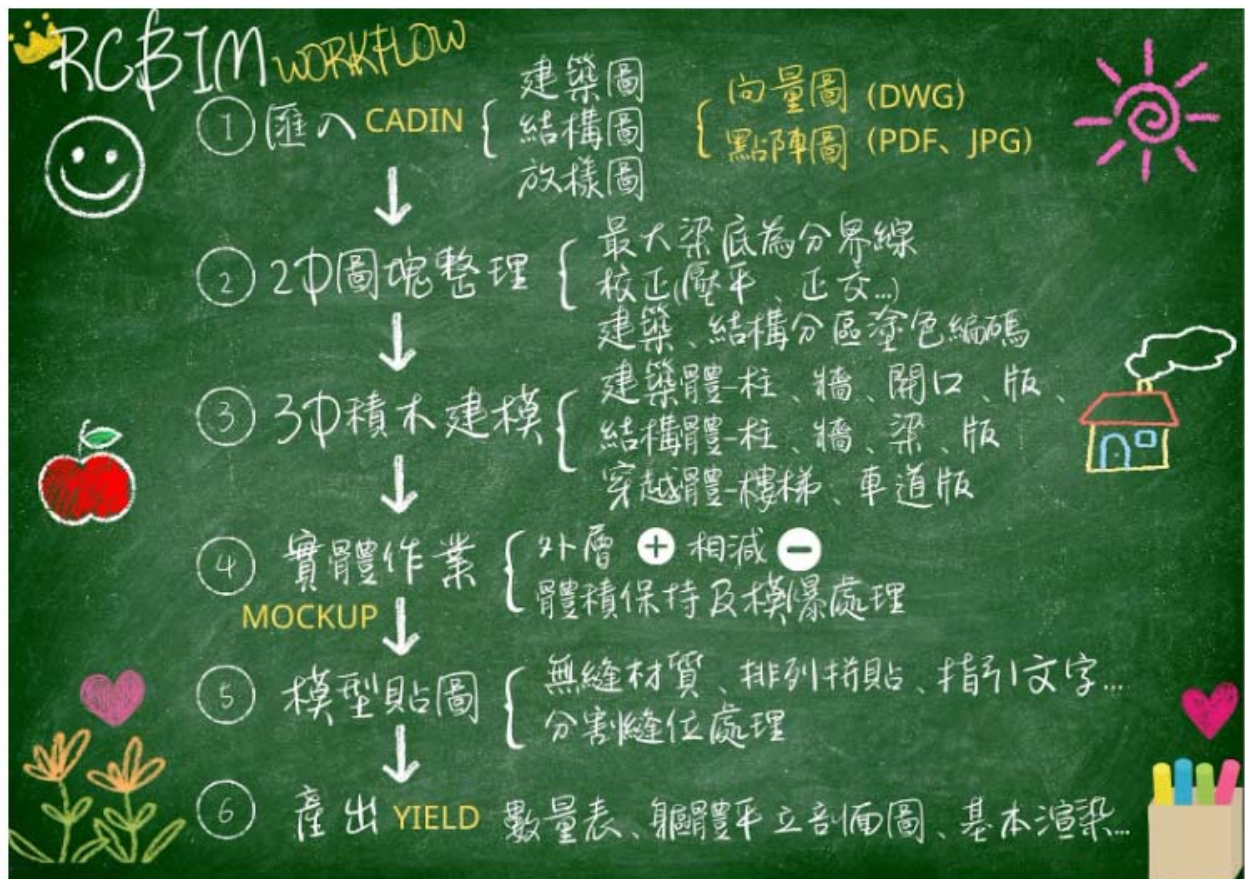 RCBIM WORKFLOW
① 匯入 CADIN
建築圖
結構圖
放樣圖
向量圖 (DWG)
點陣圖 (PDF、JPG)
② 2D圖塊整理
最大梁底為分界線
校正(壓平、正交...)
建築、結構分區塗色編碼
③ 3D積木建模
建築體-柱、牆、開口、版、
結構體-柱、牆、梁、版
穿越體-樓梯、車道版
④ 實體作業
MOCKUP
外層 + 相減 −
體積保持及模爆處理
⑤ 模型貼圖
無縫材質、排列拼貼、指引文字...
分割縫位處理
⑥ 產出 YIELD 數量表、軀體平立剖面圖、基本渲染...